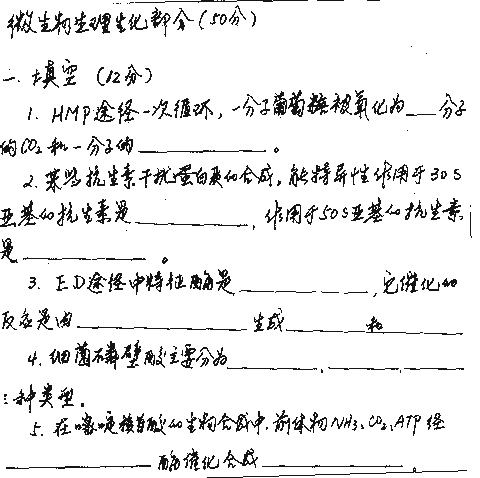 微生物生理生化部分(50分)
一. 填空 (12分)
1. HMP途径一次循环,一分子葡萄糖被氧化为___分子
的CO₂和一分子的___________。
2. 某些抗生素干扰蛋白质的合成,能特异性作用于30S
亚基的抗生素是__________,作用于50S亚基的抗生素
是__________。
3. ED途径中特征酶是___________,它催化的
反应是由_____________生成________和________
4. 细菌不磷壁酸主要分为________,________,________
三种类型。
5. 在嘧啶核苷酸的生物合成中,前体物NH₃、CO₂、ATP经
___________酶催化合成___________。